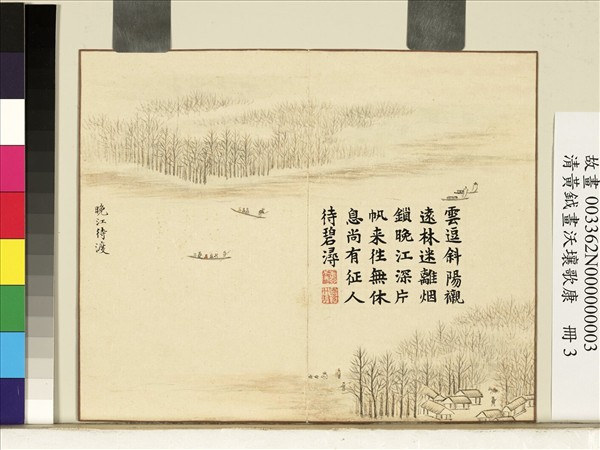 雲逗斜陽襯
遠林迷離烟
鎖晚江深片
帆来徃無休
息尚有征人
待碧潯
晚江待渡
故畫 003362N000000003
清黄鉞畫沃壤歌康 冊 3